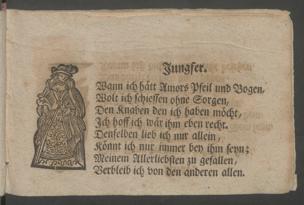 Jungfer.
Wann ich hätt Amors Pfeil und Bogen,
Wolt ich schiessen ohne Sorgen,
Den Knaben den ich haben möcht,
Ich hoff ich wär ihm eben recht.
Denselben lieb ich nur allein,
Könnt ich nur immer bey ihm seyn;
Meinem Allerliebsten zu gefallen,
Verbleib ich von den anderen allen.